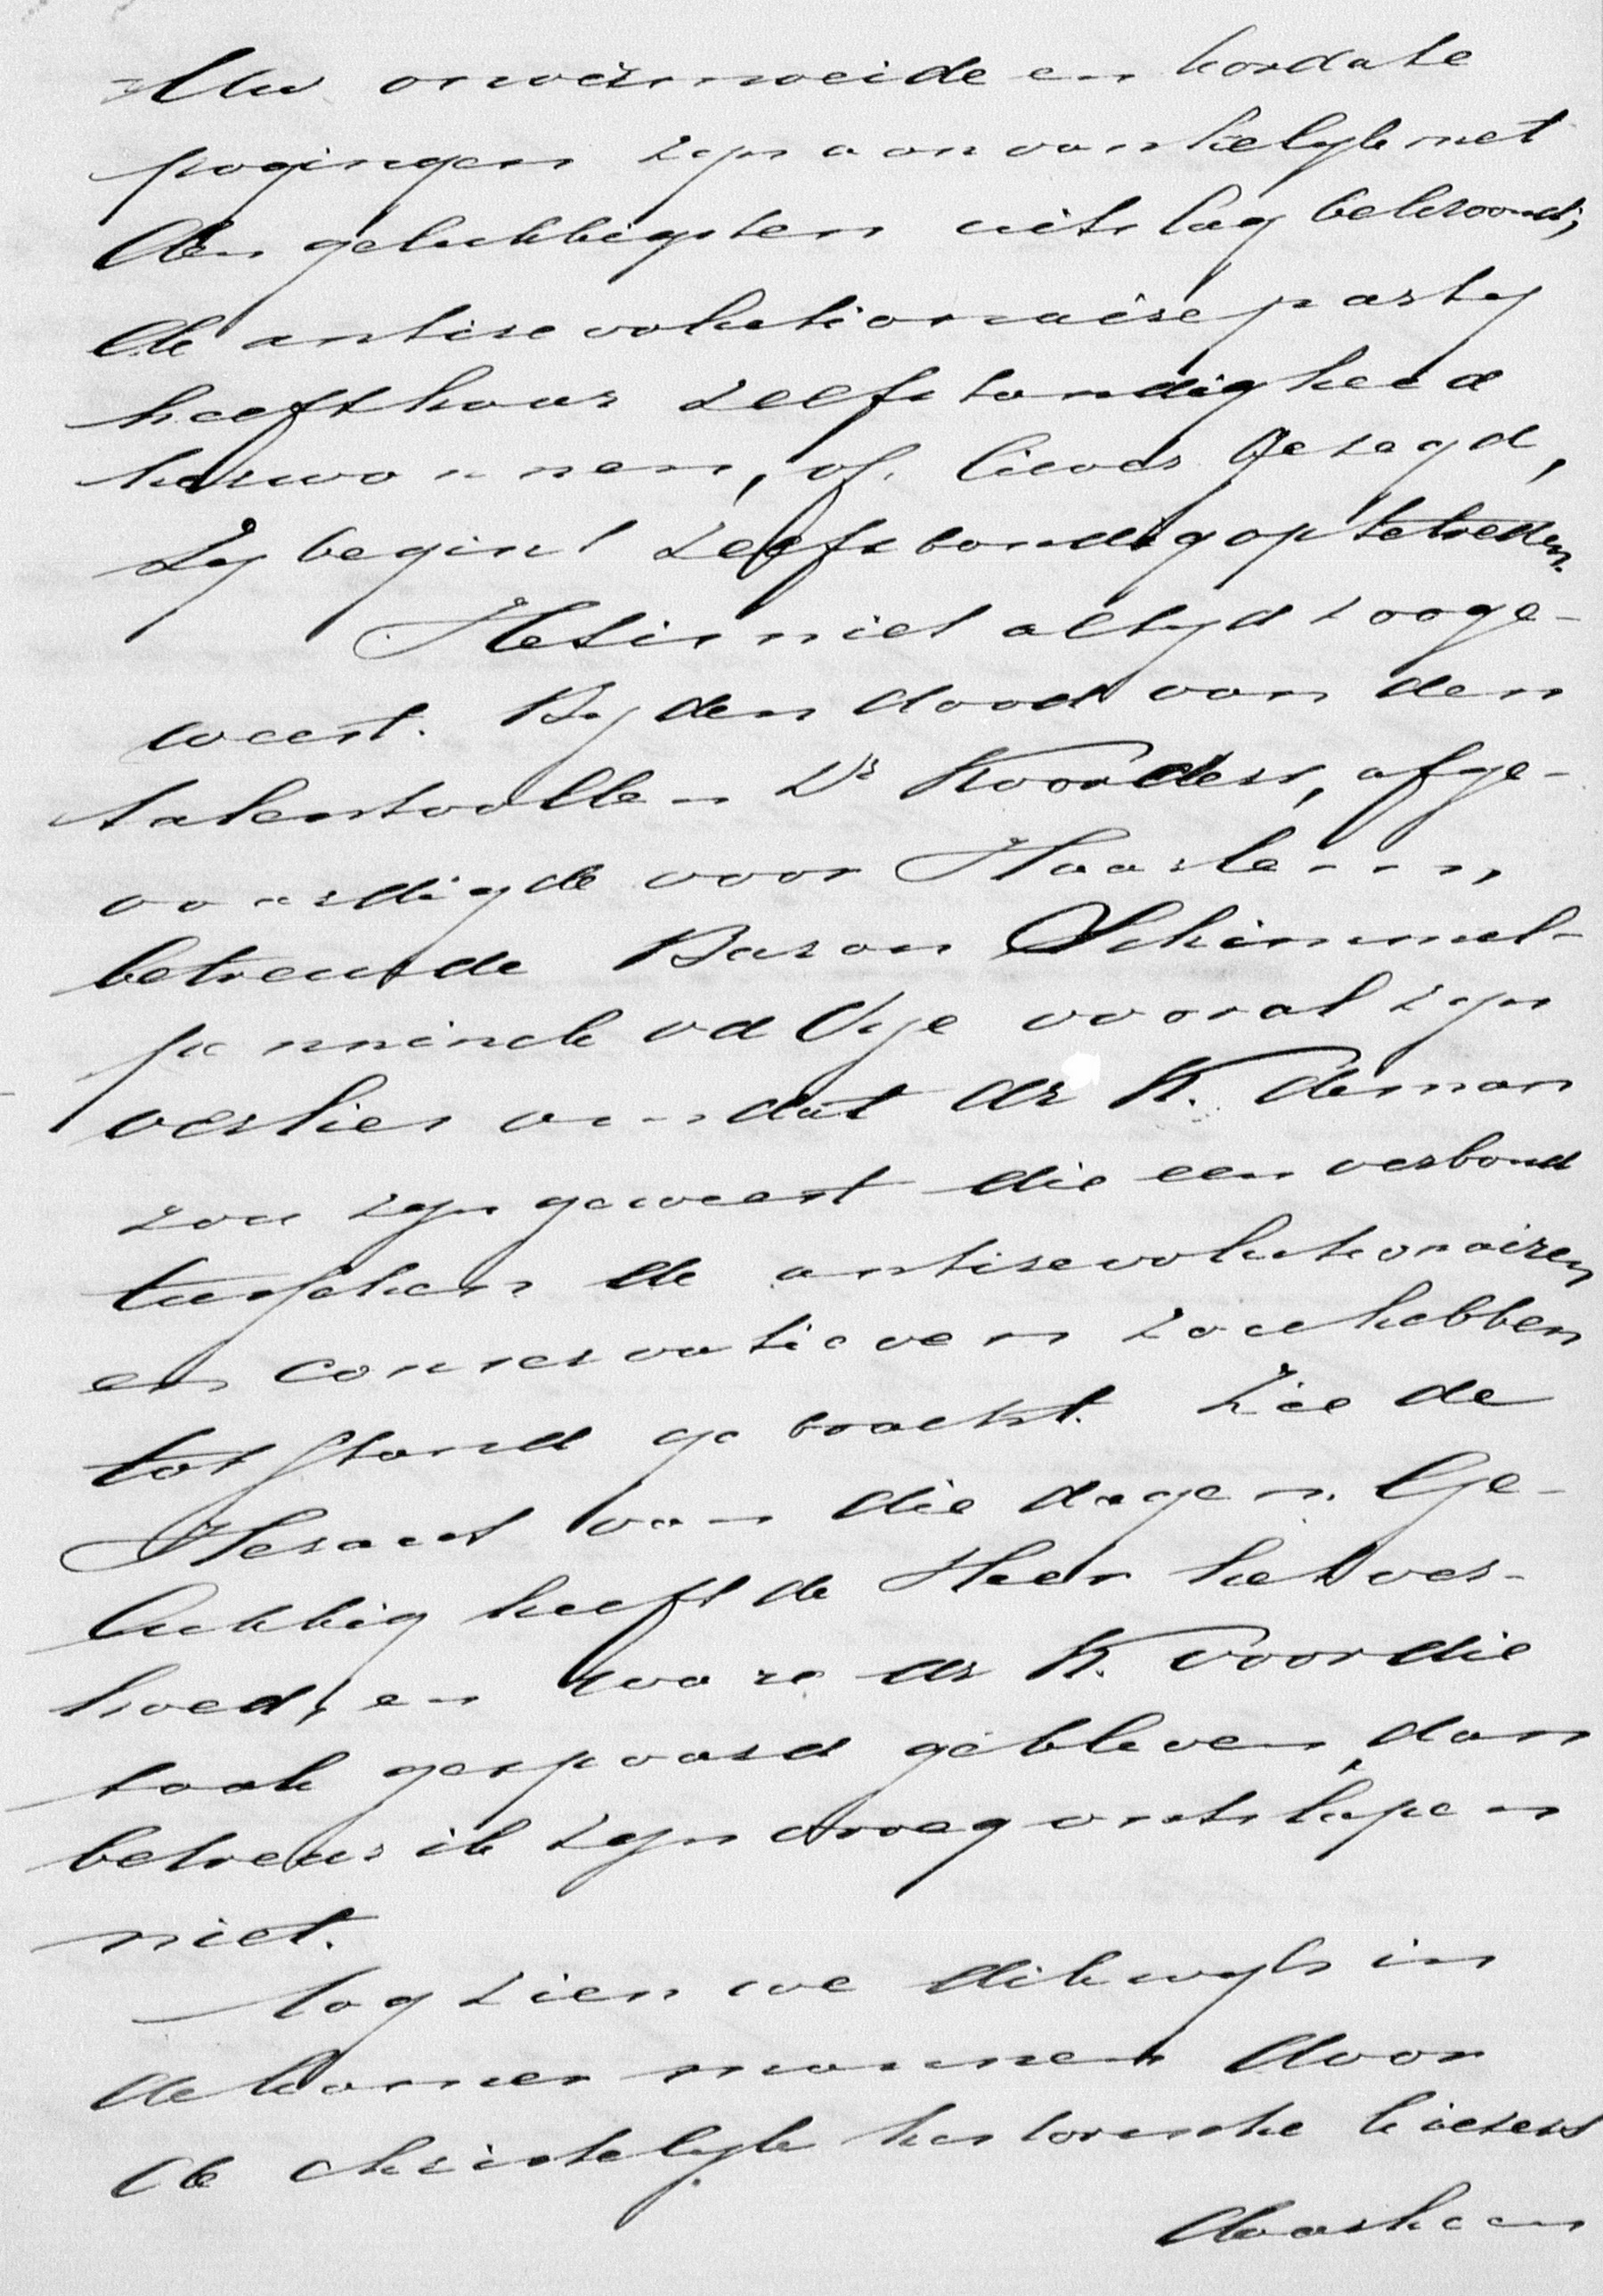 Uw onvermoeide en kordate
pogingen zyn aanvankelyk met
den gelukkigsten uitslag bekroond;
de antirevolutionaire party
heeft haar zelfstandigheid
herwonnen, of liever gezegd,
zy begint zelfstandig op te treden.
Het is niet altyd zoo ge-
weest. By den dood van den
talentvollen Dr Koorders, afge-
vaardigde voor Haarlem,
betreurde Baron Schimmel-
penninck vd Oye vooral zyn
verlies omdat dr K. de man
zou zyn geweest die een verbond
tusschen de antirevolutionairen
en conservatieven zou hebben
tot stand gebracht. Zie de
Heraut van die dagen. Ge-
lukkig heeft de Heer het ver-
hoed, en ware dr K. voor die
taak gespaard gebleven, dan
betreur ik zyn vroeg ontslapen
niet.
Nog zien we dikwyls in
de kamer mannen door
de christelyk historische kiezers
daarheen